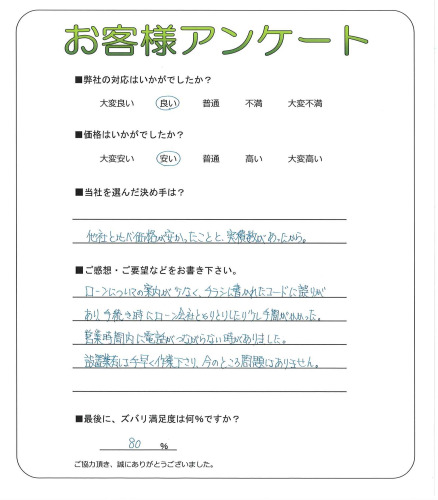 お客様アンケート
■弊社の対応はいかがでしたか？
大変良い 良い 普通 不満 大変不満
■価格はいかがでしたか？
大変安い 安い 普通 高い 大変高い
■当社を選んだ決め手は？
他社と比べ価格が安かったことと、実績数があったから。
■ご感想・ご要望などをお書き下さい。
ローンについての案内が少なく、チラシに書かれたコードに誤りが
あり、手続き時にローン会社とやりとりしたり少し手間がかかった。
営業時間内に電話がつながらない時がありました。
設置業者は手早く作業下さり、今のところ問題はありません。
■最後に、ズバリ満足度は何%ですか？
80 %
ご協力頂き、誠にありがとうございました。